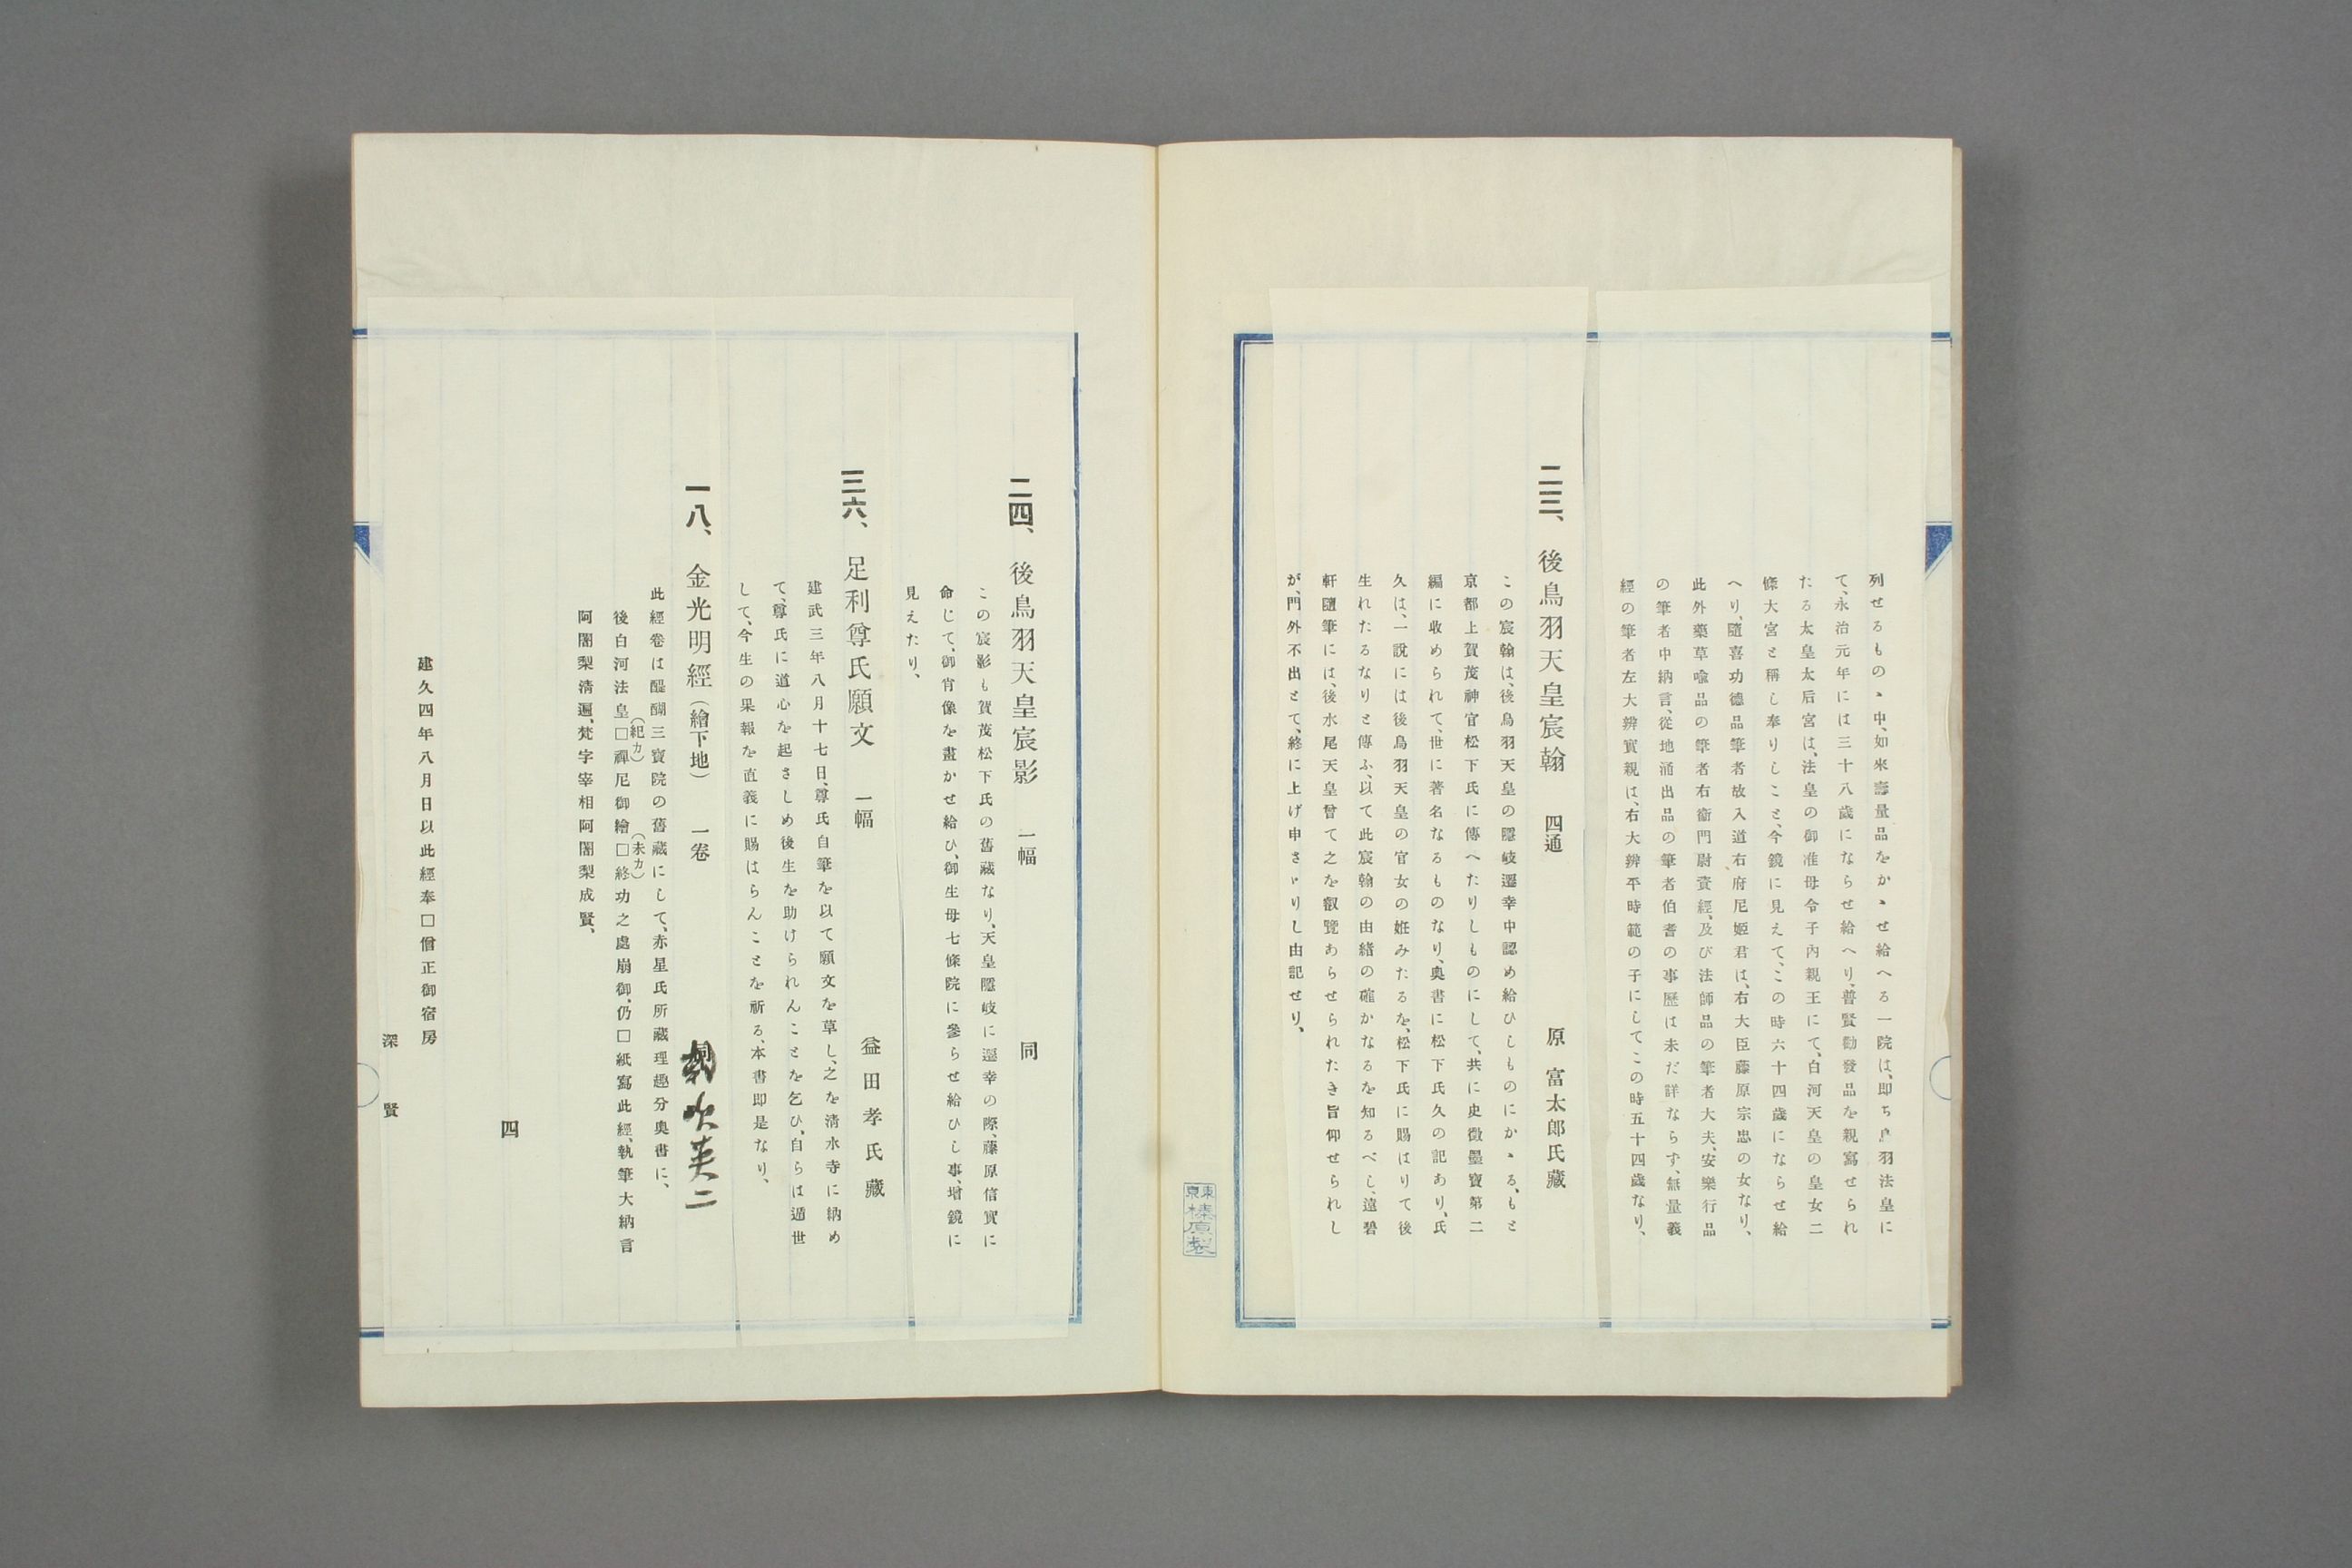 列せるものゝ中、如來壽量品をかゝせ給へる一院は、即ち鳥羽法皇に
て、永治元年には三十八歳にならせ給へり、普賢勸發品を親寫せられ
たる太皇太后宮は、法皇の御准母令子內親王にて、白河天皇の皇女二
條大宮と稱し奉りしこと、今鏡に見えて、この時六十四歳にならせ給
へり、隨喜功德品筆者故入道右府尼姬君は、右大臣藤原宗忠の女なり、
此外藥草喩品の筆者右衞門尉資經、及び法師品の筆者大夫、安樂行品
の筆者中納言、從地涌出品の筆者伯耆の事歷は未だ詳ならず、無量義
經の筆者左大辨實親は、右大辨平時範の子にしてこの時五十四歳なり、
二三、後鳥羽天皇宸翰 四通 原富太郎氏藏
この宸翰は、後鳥羽天皇の隱岐遷幸中認め給ひしものにかゝる、もと
京都上賀茂神官松下氏に傳へたりしものにして、共に史徵墨寶第二
編に收められて、世に著名なるものなり、奥書に松下氏久の記あり、氏
久は、一說には後鳥羽天皇の官女の姙みたるを、松下氏に賜はりて後
生れたるなりと傳ふ、以て此宸翰の由緖の確かなるを知るべし、遠碧
軒隨筆には、後水尾天皇曾て之を叡覽あらせられたき旨仰せられし
が、門外不出とて、終に上げ申さゞりし由記せり、
東京榛原製
二四、後鳥羽天皇宸影 一幅 同
この宸影も賀茂松下氏の舊藏なり、天皇隱岐に遷幸の際、藤原信實に
命じて、御肖像を畫かせ給ひ、御生母七條院に參らせ給ひし事、增鏡に
見えたり、
三六、足利尊氏願文 一幅 益田孝氏藏
建武三年八月十七日、尊氏自筆を以て願文を草し、之を淸水寺に納め
て、尊氏に道心を起さしめ後生を助けられんことを乞ひ、自らは遁世
して、今生の果報を直義に賜はらんことを祈る、本書卽是なり、
一八、金光明經(繪下地) 一卷 吹英二
此經卷は醍醐三寳院の舊藏にして、赤星氏所藏理趣分奥書に、
後白河法皇□(紀カ)禪尼御繪□(未カ)終功之處崩御、仍□紙寫此經、執筆大納言
阿闍梨淸遍、梵字宰相阿闍梨成賢、
四
建久四年八月日以此經奉□僧正御宿房
深賢